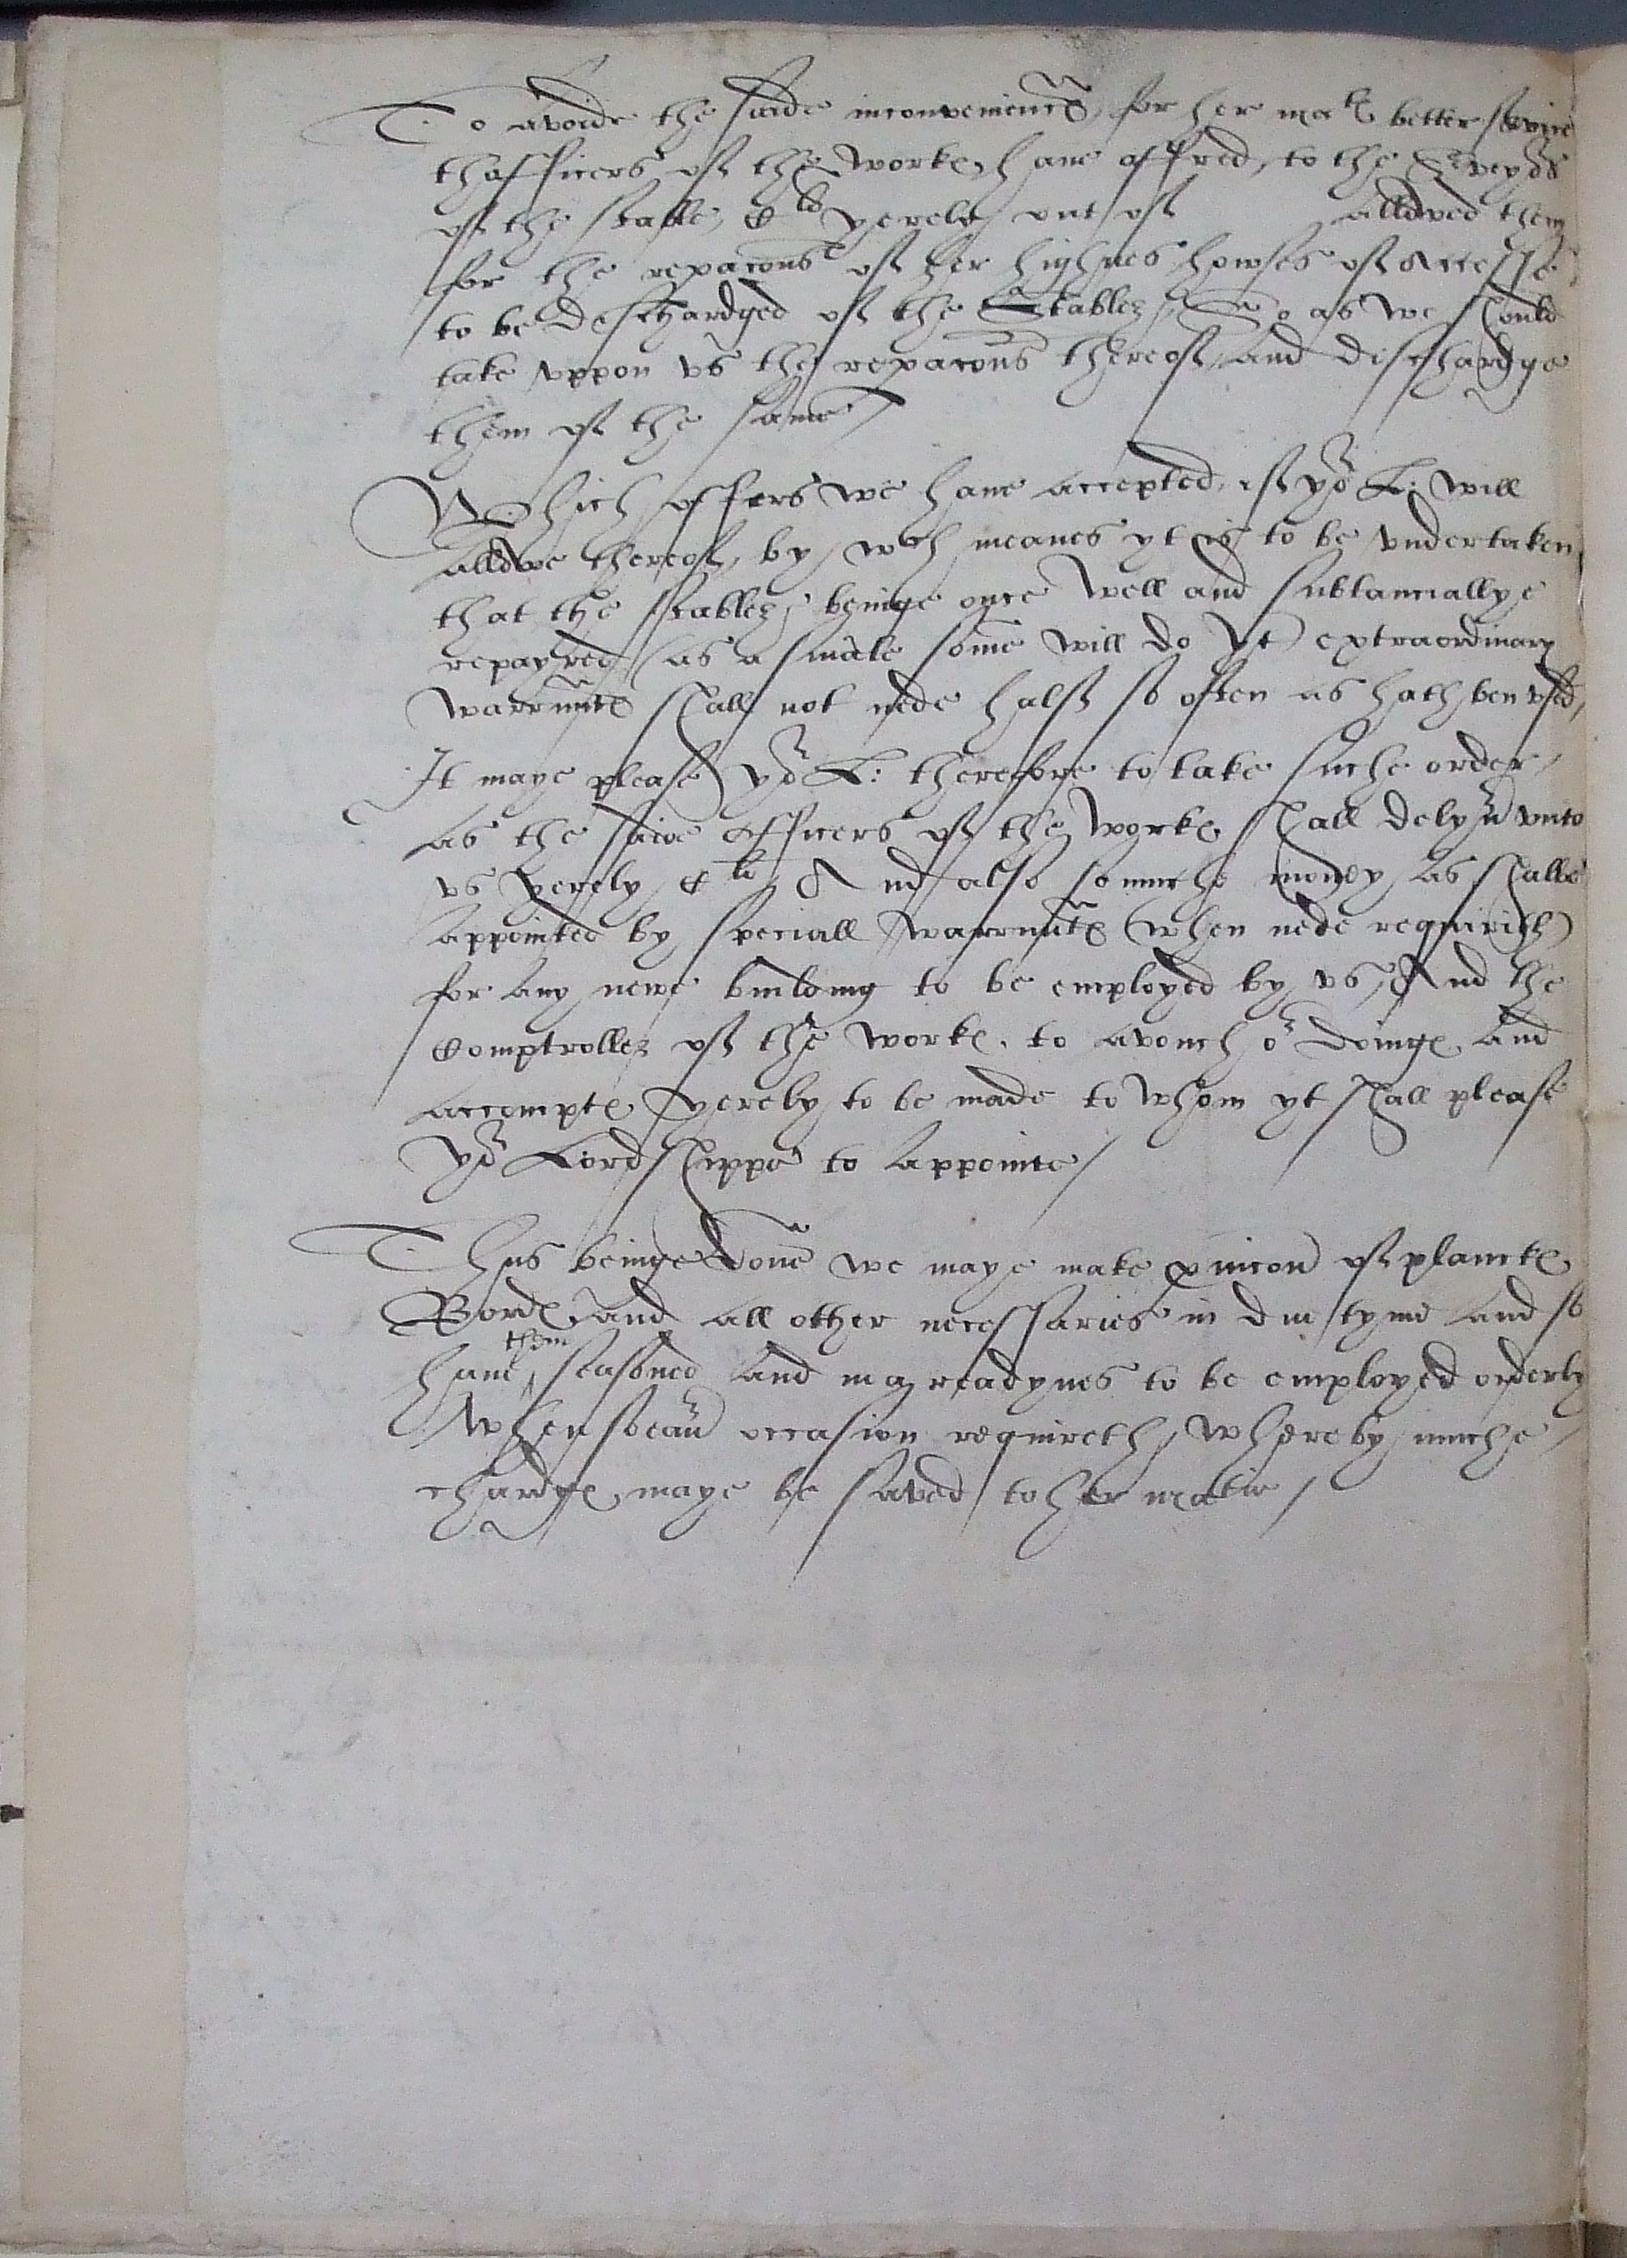 To avoide the saide inconveniences, for her mates better service
thofficers of the workes have offred, to the Surveyors
of the stable, Cli yerely out of allowed them
for the repacons of her highnes howses of Accesse
to be deschardged of the Stables, So as we should
take uppon us the repacons thereof, and dischardge
them of the same /
Which offers we have accepted, if yor L: will
allowe thereof, by wch meanes yt is to be undertaken
that the stables beinge once well and substanciallye
repayred (as a smale some will do yt) extraordinary
warrauntes shall not nede half so often as hath ben used,
It maye please yor L: therefore to take suche order,
as the saide officers of the workes shall delyver unto
us yerely Cli And also so muche money as shalbe
appointed by speciall warrauntes (when nede requirith)
for any newe building to be employed by us, And the
Comptroller of the workes, to avouch or doinges and
accomptes yerely to be made to whom yt shall please
yor Lordshippe to appointe /
Thus beinge done we maye make pvicon of planckes
Bordes and all other necessaries in due tyme and so
them
have ^ seasoned and in a readynes to be employed orderly
whensoever occasion requireth, whereby muche
chardges maye be saved to her matie /